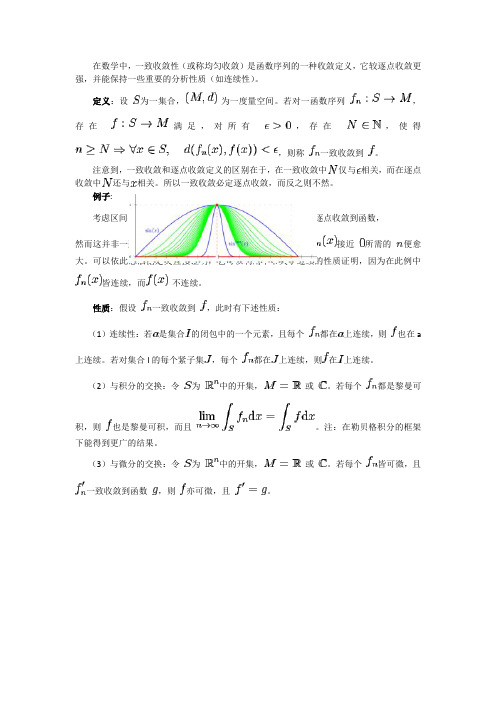 在数学中,一致收敛性(或称均匀收敛)是函数序列的一种收敛定义,它较逐点收敛更
强,并能保持一些重要的分析性质(如连续性)。
定义:设 S为一集合,(M, d) 为一度量空间。若对一函数序列 fₙ : S → M,
存在 f : S → M 满足,对所有 ϵ > 0,存在 N ∈ ℕ,使得
n ≥ N ⇒ ∀x ∈ S, d(fₙ(x), f(x)) < ϵ,则称 fₙ一致收敛到 f。
注意到,一致收敛和逐点收敛定义的区别在于,在一致收敛中N仅与ϵ相关,而在逐点
收敛中N还与x相关。所以一致收敛必定逐点收敛,而反之则不然。
例子:
考虑区间 逐点收敛到函数,
然而这并非一 n(x)接近 0所需的 n便愈
大。可以依此 的性质证明,因为在此例中
fₙ(x)皆连续,而f(x) 不连续。
性质:假设 fₙ一致收敛到 f,此时有下述性质:
(1)连续性:若a是集合I的闭包中的一个元素,且每个 fₙ都在a上连续,则 f也在 a
上连续。若对集合 I 的每个紧子集J,每个 fₙ都在J上连续,则f在I上连续。
(2)与积分的交换:令 S为 ℝⁿ中的开集,M = ℝ 或 ℂ。若每个 fₙ都是黎曼可
积,则 f也是黎曼可积,而且 lim n→∞ ∫_S fₙdx = ∫_S fdx。注:在勒贝格积分的框架
下能得到更广的结果。
(3)与微分的交换:令 S为 ℝⁿ中的开集,M = ℝ 或 ℂ。若每个 fₙ皆可微,且
f′ₙ一致收敛到函数 g,则 f亦可微,且 f′ = g。